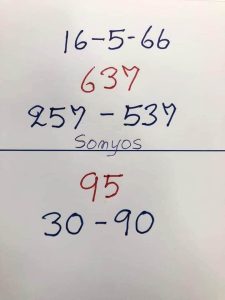 16-5-66
637
257 - 537
Somyos
95
30 - 90